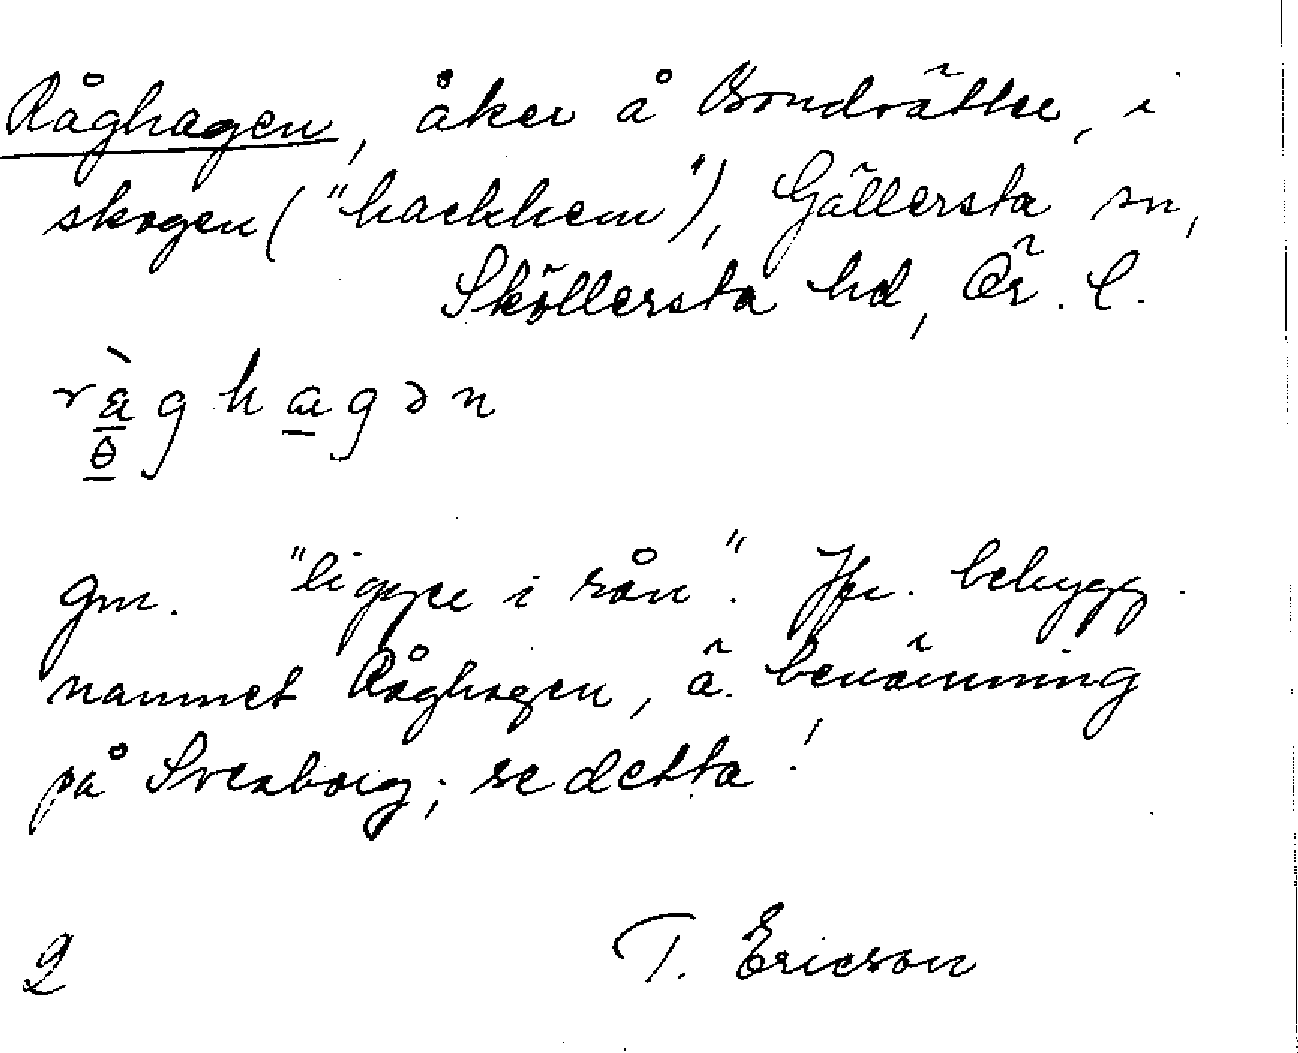 Råghagen, åker å Bondsätter, i
skogen ("hackhem"), Gällersta sn,
Sköllersta hd, Ör. l.
ràghagən
gm. "ligger i rån". Jfr. bebygg.
namnet Råghagen, ä. benämning
på Svenborg; se detta!
T. Ericson